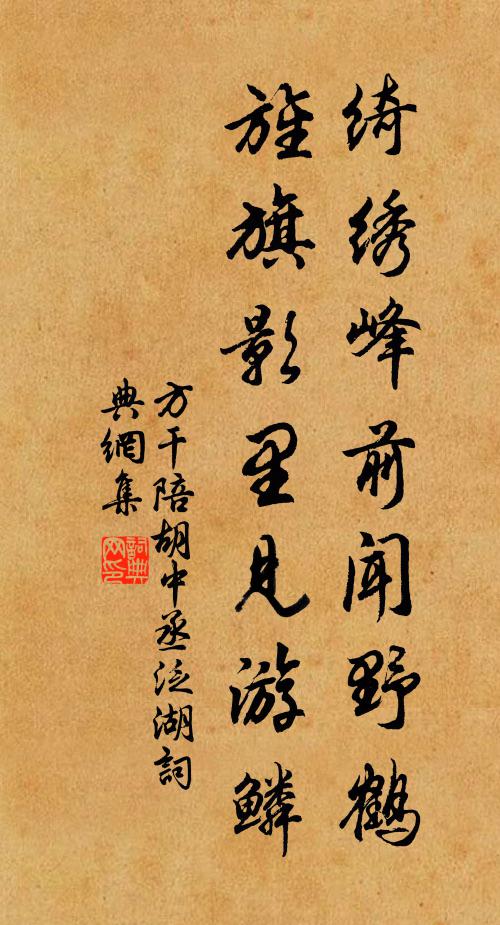 绮绣峰前闻野鹤
旌旗影里见游鳞
方干陪胡中丞泛湖詞
典網集
詞典網印